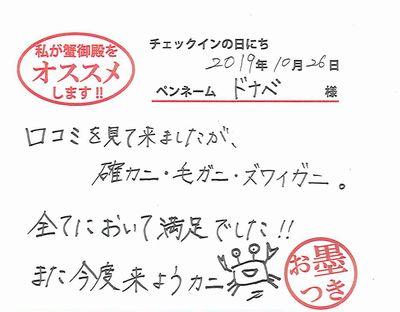 私が蟹御殿を
オススメ
します!!
チェックインの日にち
2019年10月26日
ペンネーム ドナベ 様
口コミを見て来ましたが、
確カニ・毛ガニ・ズワイガニ。
全てにおいて満足でした!!
また今度来ようカニ
お墨
つき